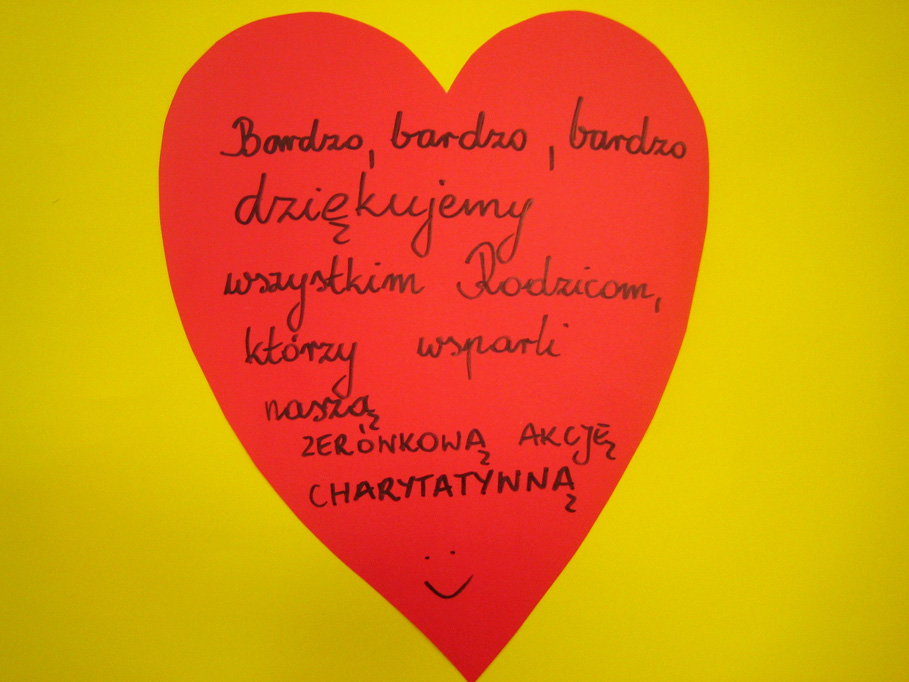 Bardzo, bardzo, bardzo
dziękujemy
wszystkim Rodzicom,
którzy wsparli
naszą
ZERÓWKOWĄ AKCJĘ
CHARYTATYWNĄ